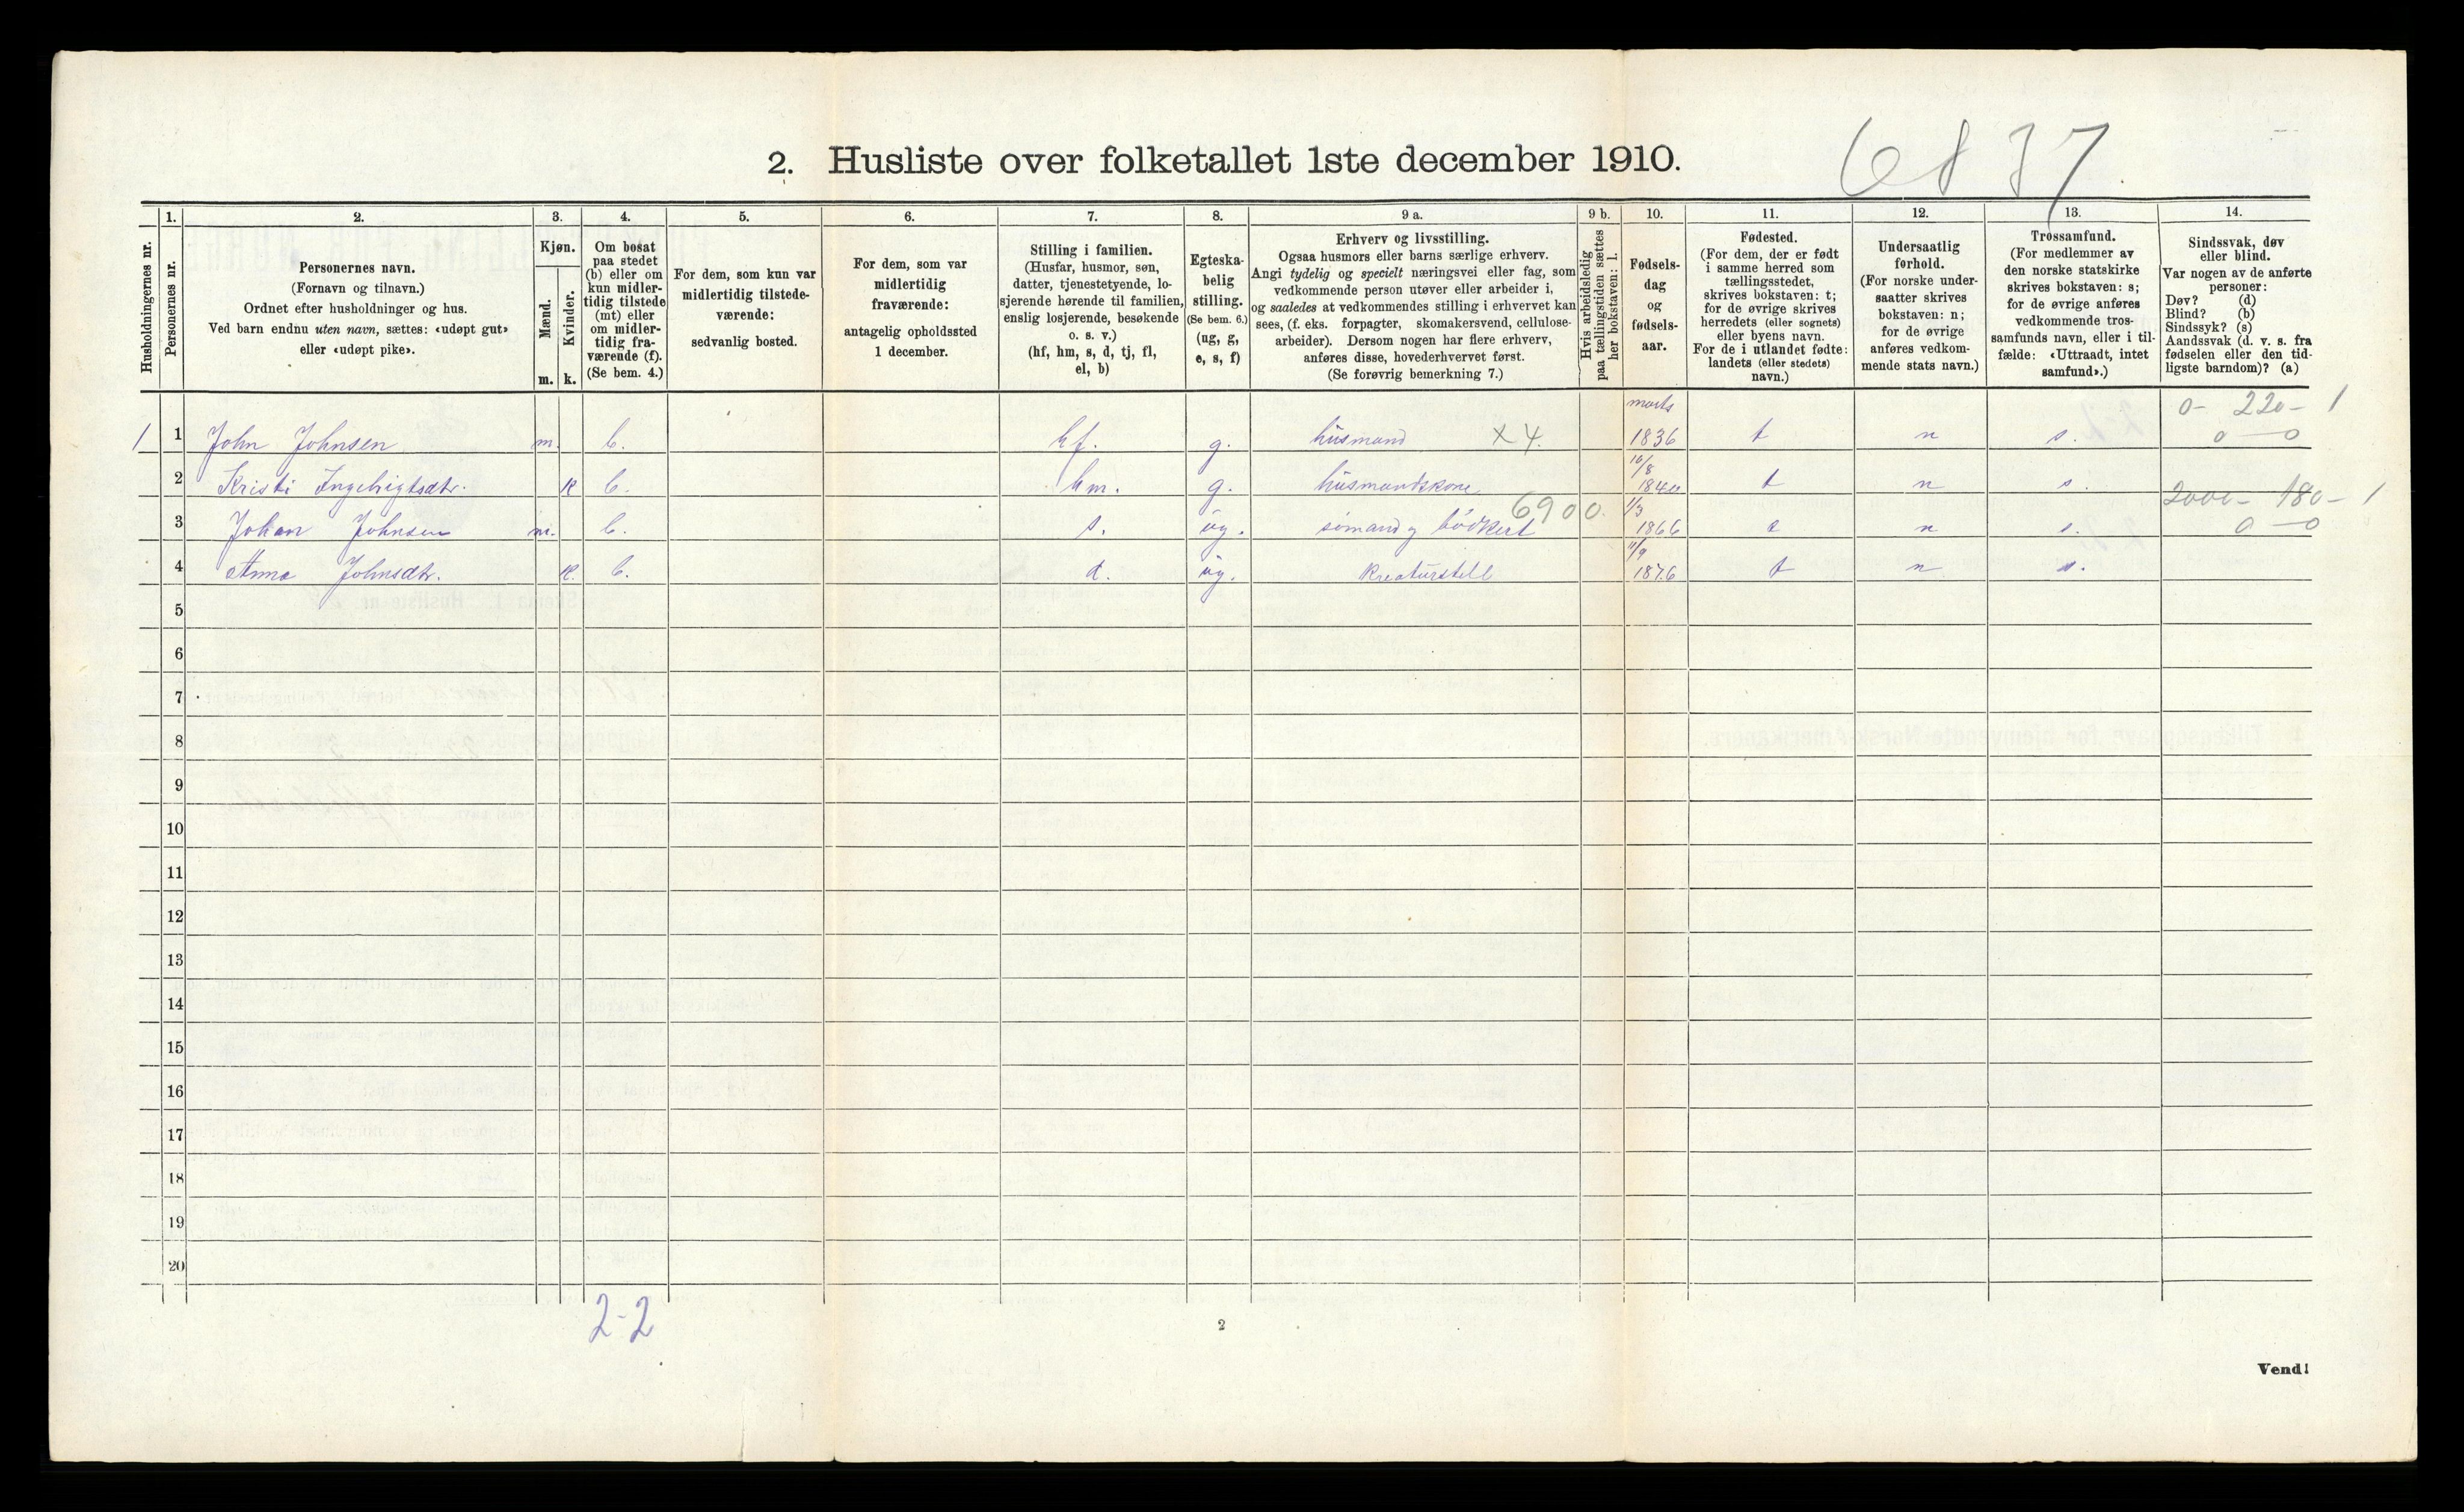 6837
2. Husliste over folketallet 1ste december 1910.
Husholdningernes nr.
1.
Personernes nr.
2.
Personernes navn.
(Fornavn og tilnavn.)
Ordnet efter husholdninger og hus.
Ved barn endnu uten navn, sættes: «udøpt gut»
eller «udøpt pike».
3.
Kjøn.
Mænd.
Kvinder.
m. k.
4.
Om bosat
paa stedet
(b) eller om
kun midler-
tidig tilstede
(mt) eller
om midler-
tidig fra-
værende (f).
(Se bem. 4.)
5.
For dem, som kun var
midlertidig tilstede-
værende:
sedvanlig bosted.
6.
For dem, som var
midlertidig
fraværende:
antagelig opholdssted
1 december.
7.
Stilling i familien.
(Husfar, husmor, søn,
datter, tjenestetyende, lo-
sjerende hørende til familien,
enslig losjerende, besøkende
o. s. v.)
(hf, hm, s, d, tj, fl,
el, b)
8.
Egteska-
belig
stilling.
(Se bem. 6.)
(ug, g,
e, s, f)
9 a.
Erhverv og livsstilling.
Ogsaa husmors eller barns særlige erhverv.
Angi tydelig og specielt næringsvei eller fag, som
vedkommende person utøver eller arbeider i,
og saaledes at vedkommendes stilling i erhvervet kan
sees, (f. eks. forpagter, skomakersvend, cellulose-
arbeider). Dersom nogen har flere erhverv,
anføres disse, hovederhvervet først.
(Se forøvrig bemerkning 7.)
9 b.
Hvis arbeidsledig
paa tællingstiden sættes
her bokstaven: l.
10.
Fødsels-
dag
og
fødsels-
aar.
11.
Fødested.
(For dem, der er født
i samme herred som
tællingsstedet,
skrives bokstaven: t;
for de øvrige skrives
herredets (eller sognets)
eller byens navn.
For de i utlandet fødte:
landets (eller stedets)
navn.)
12.
Undersaatlig
forhold.
(For norske under-
saatter skrives
bokstaven: n;
for de øvrige
anføres vedkom-
mende stats navn.)
13.
Trossamfund.
(For medlemmer av
den norske statskirke
skrives bokstaven: s;
for de øvrige anføres
vedkommende tros-
samfunds navn, eller i til-
fælde: «Uttraadt, intet
samfund».)
14.
Sindssvak, døv
eller blind.
Var nogen av de anførte
personer:
Døv? (d)
Blind? (b)
Sindssyk? (s)
Aandssvak (d. v. s. fra
fødselen eller den tid-
ligste barndom)? (a)
marts 0- 220- 1
1 1 John Johnsen m. b. hf. g. husmand X4. 1836 t n s. 0 — 0
10/8
2 Kristi Ingebrigtsdtr. k b. hm. g. husmandskone 1840 t n s.
6900. 1/3 2000- 180- 1
3 Johan Johnsen m. b. s. ug. sømand g bødkert 1866 t n s. 0 — 0
11/9
4 Anna Johnsdtr. k. b. d. ug. kreaturstell 1876 t n s.
5
6
7
8
9
10
11
12
13
14
15
16
17
18
19
20
2-2
2
Vend!